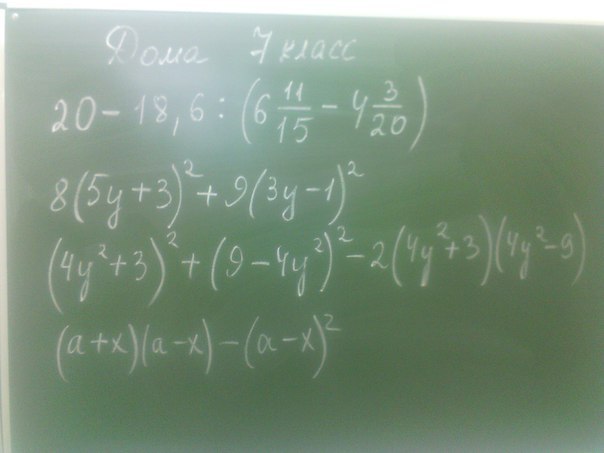 Дома 7 класс
20 - 18,6 : (6 11/15 - 4 3/20)
8(5y+3)² + 9(3y-1)²
(4y²+3)² + (9-4y²)² - 2(4y²+3)(4y²-9)
(a+x)(a-x) - (a-x)²